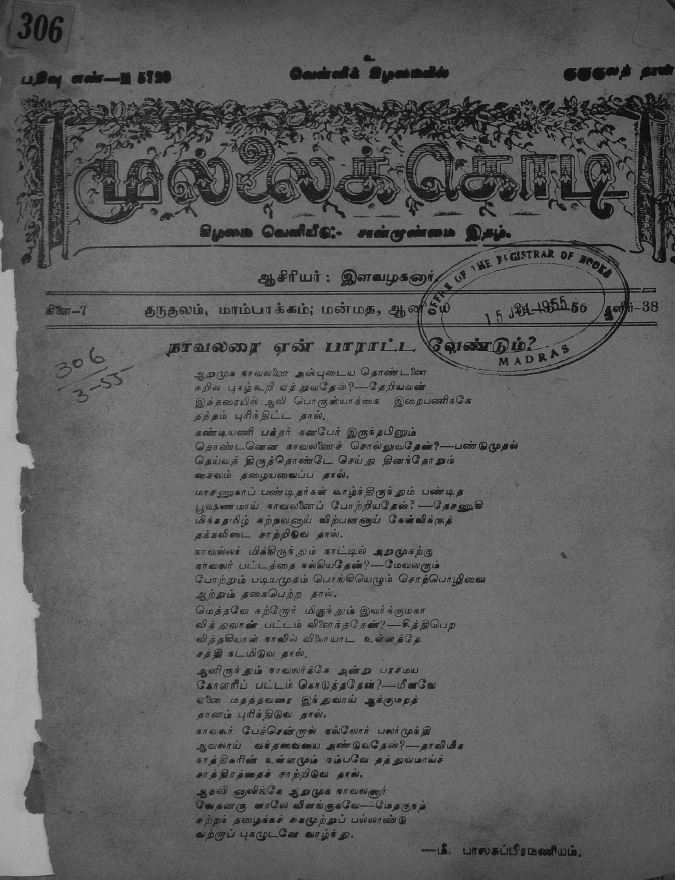 306
பதிவு எண்—M 5720
உ
வெள்ளிக் கிழமையில்
குருகுலத் தான்
முல்லைக்கொடி
கிழமை வெளியீடு:- சான்மூண்மை இதழ்.
ஆசிரியர் : இளவழகனார்
கிளை-7
குருதலம், மாம்பாக்கம்; மன்மத, ஆனி
தளிர்-38
OFFICE OF THE REGISTRAR OF BOOKS
15 JUL 1955
MADRAS
306
3-55
நாவலரை ஏன் பாராட்ட வேண்டும்?
ஆறுமுக நாவலனை அன்புடைய தொண்டனை
நறிவ புகழ்கூறி ஏத்துவதேன்?—தேறியவன்
இத்தரையில் ஆவி பொருள்யாக்கை இறைபணிக்கே
தத்தம் புரிந்திட்ட தால்.
கண்டியணி பக்தர் கனபேர் இருந்தபினும்
தொண்டனென நாவலனைச் சொல்லுவதேன்?—பண்டுமுதல்
தெய்வத் திருத்தொண்டே செய்து தினந்தோறும்
சைவம் தழையவைப்ப தால்.
மாசணுகாப் பண்டிதர்கள் வாழ்ந்திருந்தும் பண்டித
பூஷணமாய் நாவலனைப் போற்றியதேன்?—தேசணுகி
மிக்கதமிழ் கற்றவனாய் விற்பனனாய் கேள்விக்குத்
தக்கவிடை சாற்றிடுவ தால்.
நாவல்லர் மிக்கிருந்தும் நாட்டில் அறுமுகற்கு
நாவலர் பட்டத்தை நல்கியதேன்?—மேவலரும்
போற்றும் படியமுதம் பொங்கியெழும் சொற்பொழிவை
ஆற்றும் தகைபெற்ற தால்.
மெத்தவே கற்றோர் மிகுந்தும் இவர்க்குமகா
வித்துவான் பட்டம் விளைந்ததேன்?—சித்திபெற
வித்தகியாள் நாவில் விளையாட உள்ளத்தே
சத்தி நடமிடுவ தால்.
ஆளிருந்தும் நாவலர்க்கே அன்று பரசமய
கோளரிப் பட்டம் கொடுத்ததேன்?—மீளவே
ஏனை மதத்தவரை இந்துவாய் ஆக்குமறத்
தானம் புரிந்திடுவ தால்.
நாவலர் பேச்சென்றால் நல்லோர் பலர்முந்தி
ஆவலாய் வந்தவையை அண்டுவதேன்?—தாவிமிக
நாத்திகரின் உள்ளமும் நம்பவே தத்துவமாய்ச்
சாத்திரத்தைச் சாற்றிடுவ தால்.
ஆறுமுக நாவலனார்
விளங்குகவே—மேதகுசுத்
சுற்றந் தழைக்கச் சுகமுற்றுப் பல்லாண்டு
வற்றாப் புகழுடனே வாழ்ந்து.
—மீ. பாலசுப்பிரமணியம்.